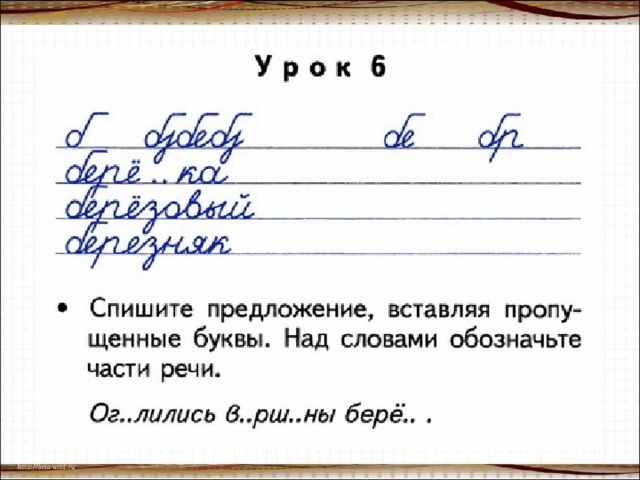 Урок 6
б бзбебз бе бр
берё..ка
берёзовый
березняк
• Спишите предложение, вставляя пропу-
щенные буквы. Над словами обозначьте
части речи.
Ог..лились в..рш..ны берё.. .